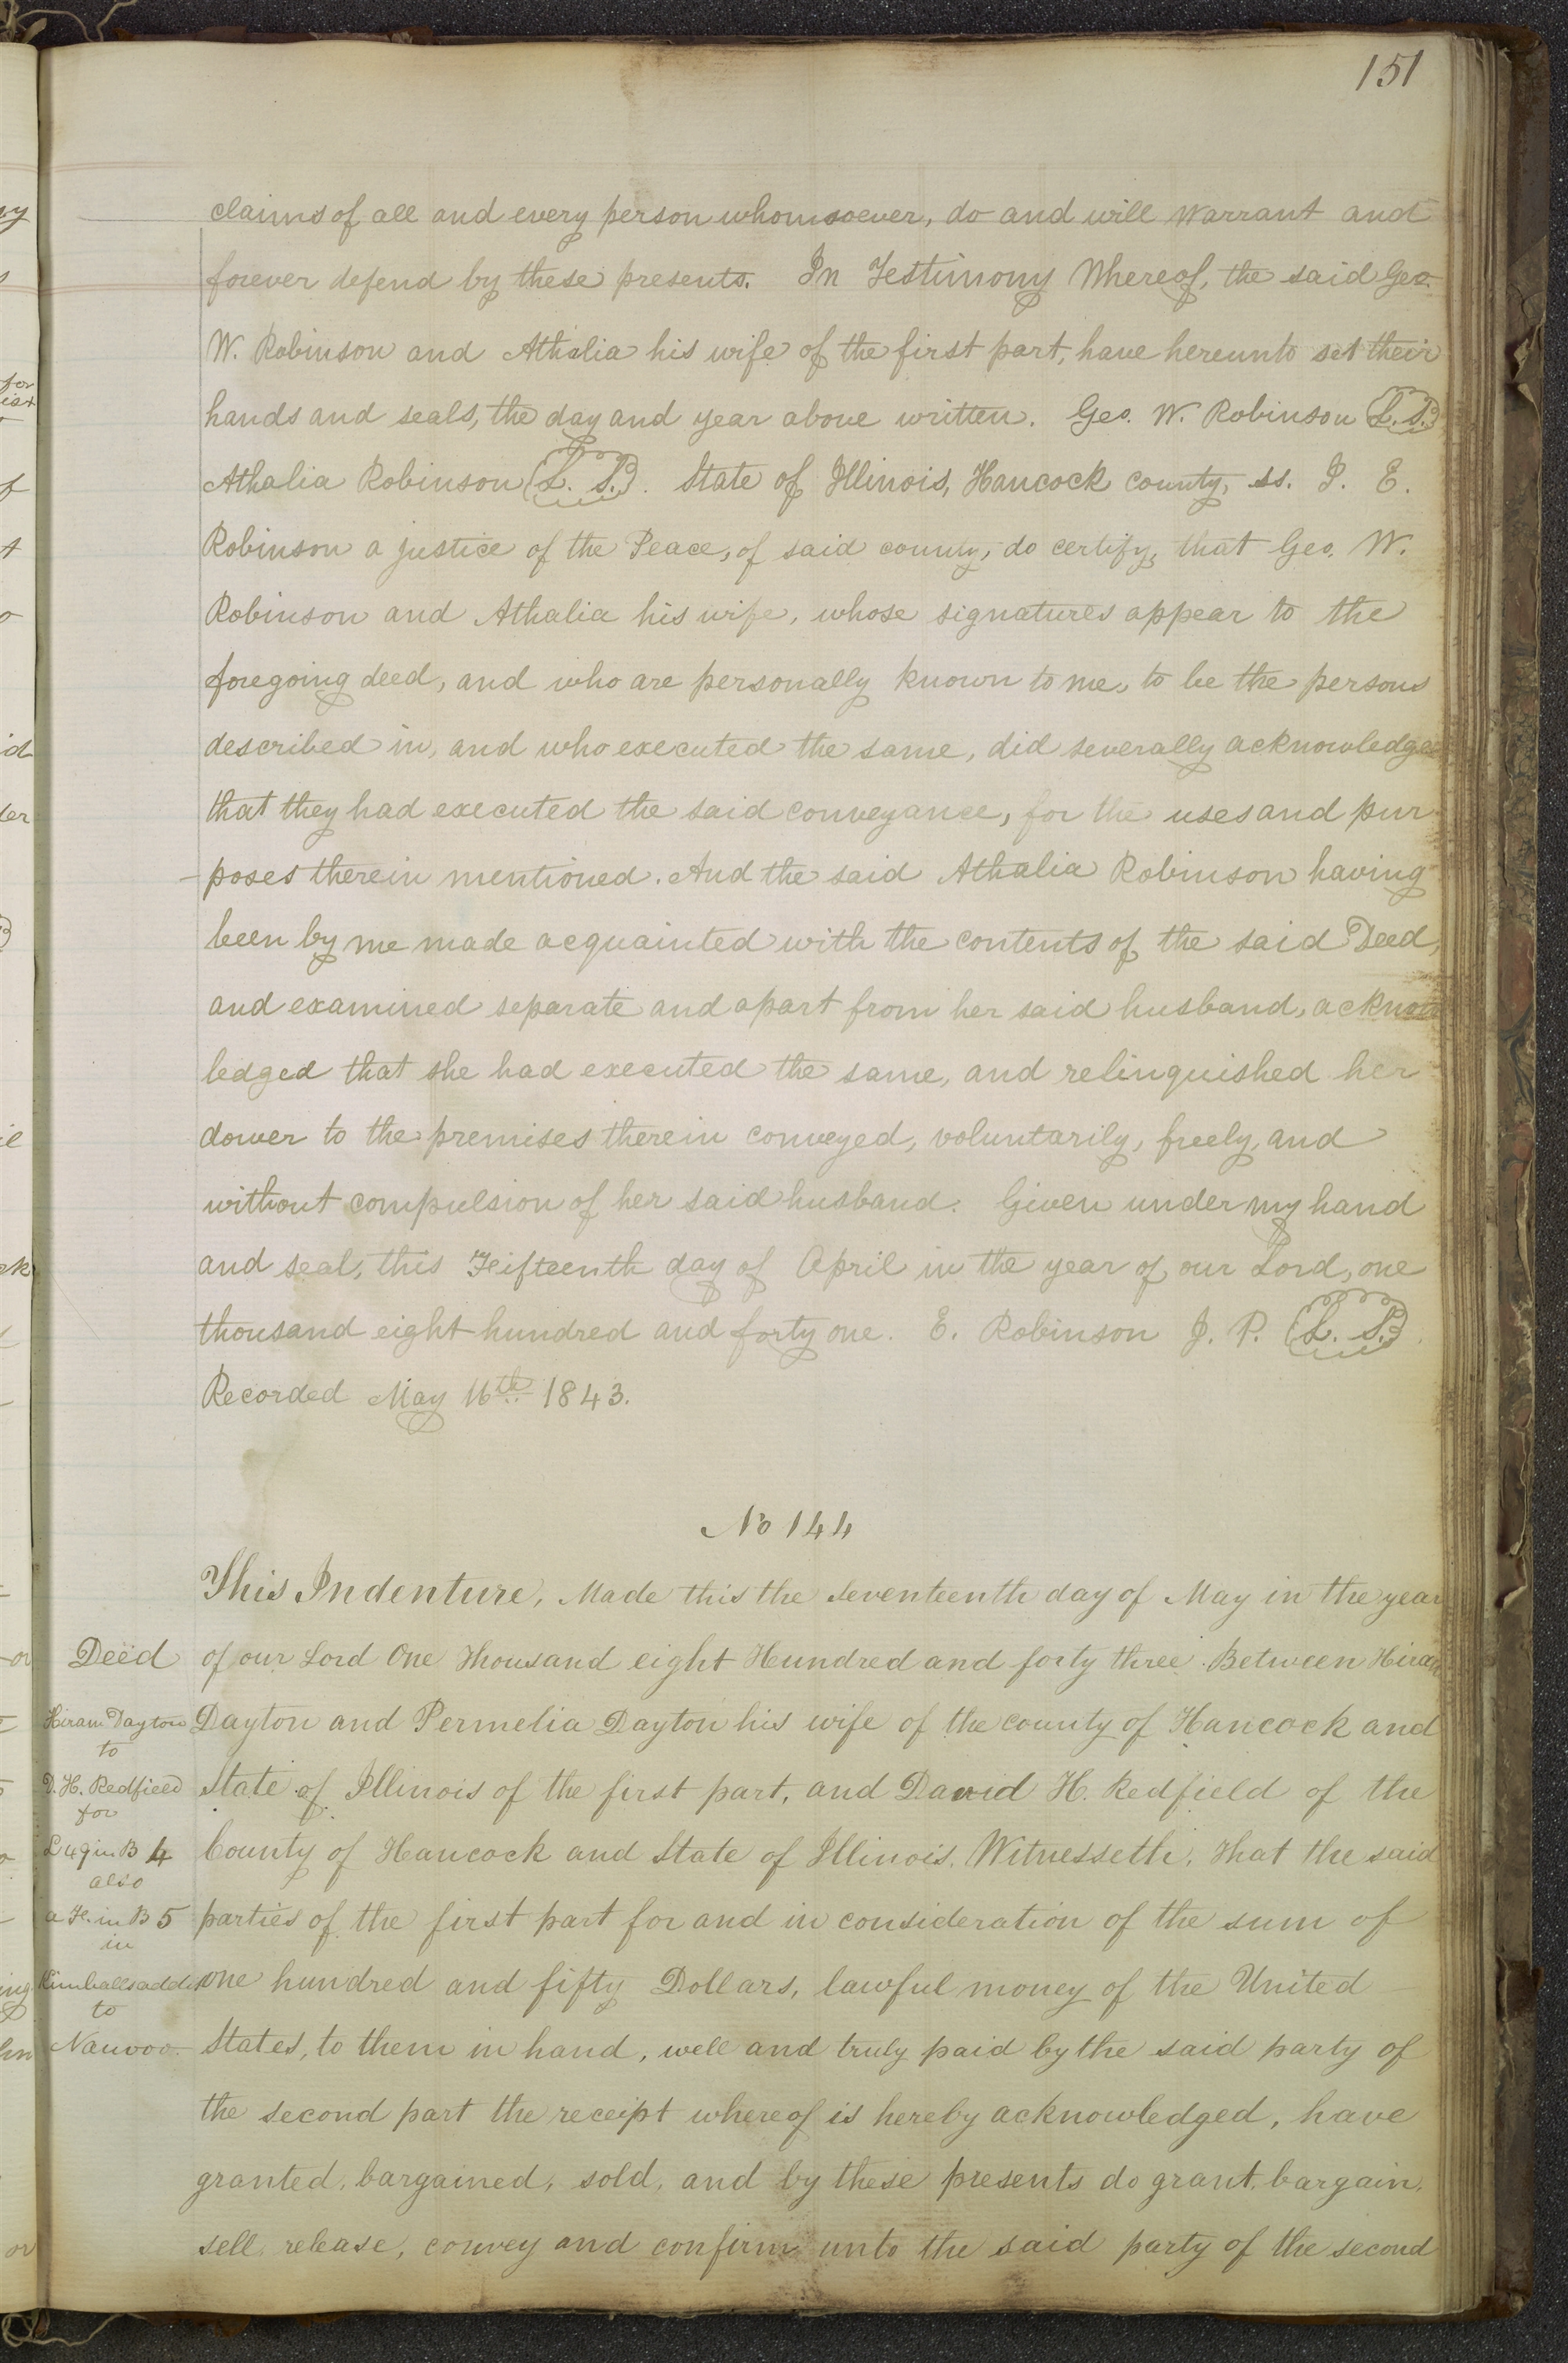 151
claims of all and every person whomsoever, do and will warrant and
forever defend by these presents. In Testimony Whereof, the said Geo.
W. Robinson and Athalia his wife of the first part, have hereunto set their
hands and seals, the day and year above written. Geo. W. Robinson (L. S.)
Athalia Robinson (L. S.). State of Illinois, Hancock county, ss. I. E.
Robinson a justice of the Peace, of said county, do certify, that Geo. W.
Robinson and Athalia his wife, whose signatures appear to the
foregoing deed, and who are personally known to me, to be the persons
described in, and who executed the same, did severally acknowledge
that they had executed the said conveyance, for the uses and pur
-poses therein mentioned. And the said Athalia Robinson having
been by me made acquainted with the contents of the said Deed,
and examined separate and apart from her said husband, acknow
ledged that she had executed the same, and relinquished her
dower to the premises therein conveyed, voluntarily, freely, and
without compulsion of her said husband. Given under my hand
and seal, this Fifteenth day of April in the year of our Lord, one
thousand eight hundred and forty one. E. Robinson J. P. (L. S.)
Recorded May 16th 1843.
No 144
This Indenture, Made this the seventeenth day of May in the year
of our Lord One Thousand eight Hundred and forty three. Between Hiram
Dayton and Permelia Dayton his wife of the county of Hancock and
State of Illinois of the first part, and David H. Redfield of the
County of Hancock and State of Illinois. Witnesseth, That the said
parties of the first part for and in consideration of the sum of
one hundred and fifty Dollars, lawful money of the United
States, to them in hand, well and truly paid by the said party of
the second part the receipt whereof is hereby acknowledged, have
granted, bargained, sold, and by these presents do grant, bargain,
sell, release, convey and confirm unto the said party of the second
Deed
Hiram Dayton
to
D. H. Redfield
for
L 49 in B 4
also
in B 5
in
Kimballs
to
Nauvoo.